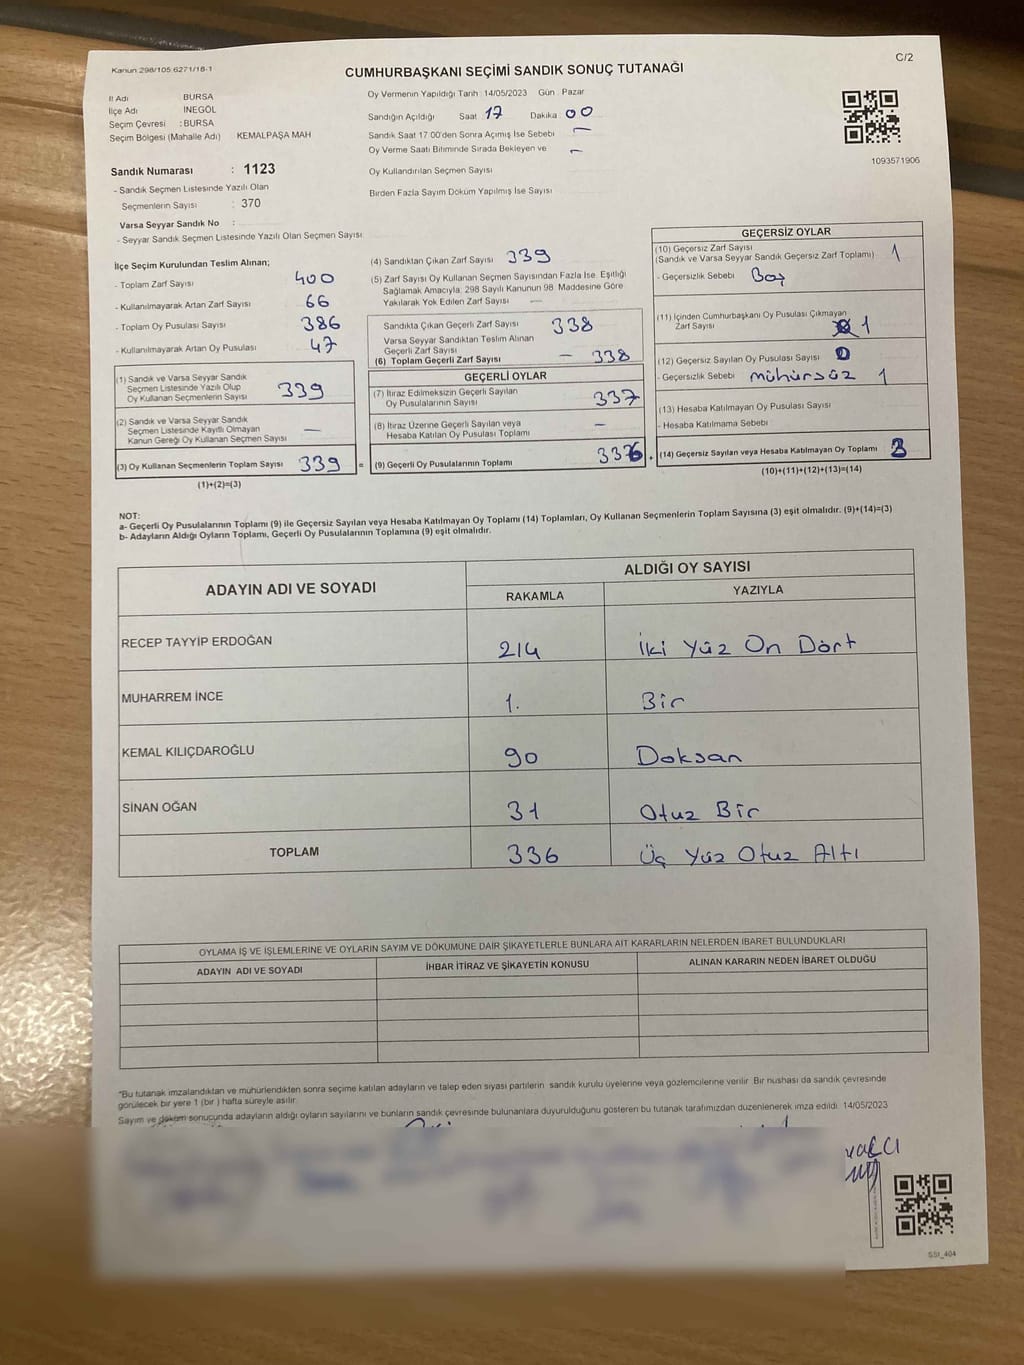 Kanun 298/105 6271/18-1
C/2
CUMHURBAŞKANI SEÇİMİ SANDIK SONUÇ TUTANAĞI
İl Adı BURSA
İlçe Adı İNEGÖL
Seçim Çevresi : BURSA
Seçim Bölgesi (Mahalle Adı) KEMALPAŞA MAH
Oy Vermenin Yapıldığı Tarih 14/05/2023 Gün Pazar
Sandığın Açıldığı Saat 17 Dakika 00
Sandık Saat 17 00'den Sonra Açımış İse Sebebi —
Oy Verme Saati Bitiminde Sırada Bekleyen ve —
Oy Kullandırılan Seçmen Sayısı
Birden Fazla Sayım Döküm Yapılmış İse Sayısı
1093571906
Sandık Numarası : 1123
- Sandık Seçmen Listesinde Yazılı Olan
Seçmenlerin Sayısı : 370
Varsa Seyyar Sandık No :
- Seyyar Sandık Seçmen Listesinde Yazılı Olan Seçmen Sayısı
İlçe Seçim Kurulundan Teslim Alınan;
- Toplam Zarf Sayısı 400
- Kullanılmayarak Artan Zarf Sayısı 66
- Toplam Oy Pusulası Sayısı 386
- Kullanılmayarak Artan Oy Pusulası 47
(1) Sandık ve Varsa Seyyar Sandık
Seçmen Listesinde Yazılı Olup
Oy Kullanan Seçmenlerin Sayısı 339
(2) Sandık ve Varsa Seyyar Sandık
Seçmen Listesinde Kayıtlı Olmayan
Kanun Gereği Oy Kullanan Seçmen Sayısı —
(3) Oy Kullanan Seçmenlerin Toplam Sayısı 339 =
(1)+(2)=(3)
(4) Sandıktan Çıkan Zarf Sayısı 339
(5) Zarf Sayısı Oy Kullanan Seçmen Sayısından Fazla İse. Eşitliği
Sağlamak Amacıyla. 298 Sayılı Kanunun 98. Maddesine Göre
Yakılarak Yok Edilen Zarf Sayısı —
Sandıkta Çıkan Geçerli Zarf Sayısı 338
Varsa Seyyar Sandıktan Teslim Alınan
Geçerli Zarf Sayısı —
(6) Toplam Geçerli Zarf Sayısı 338
GEÇERLİ OYLAR
(7) İtiraz Edilmeksizin Geçerli Sayılan
Oy Pusulalarının Sayısı 337
(8) İtiraz Üzerine Geçerli Sayılan veya
Hesaba Katılan Oy Pusulası Toplamı —
(9) Geçerli Oy Pusulalarının Toplamı 336
GEÇERSİZ OYLAR
(10) Geçersiz Zarf Sayısı
(Sandık ve Varsa Seyyar Sandık Geçersiz Zarf Toplamı) 1
- Geçersizlik Sebebi Boş
(11) İçinden Cumhurbaşkanı Oy Pusulası Çıkmayan
Zarf Sayısı 1
(12) Geçersiz Sayılan Oy Pusulası Sayısı
- Geçersizlik Sebebi mühürsüz 1
(13) Hesaba Katılmayan Oy Pusulası Sayısı
- Hesaba Katılmama Sebebi
(14) Geçersiz Sayılan veya Hesaba Katılmayan Oy Toplamı 3
(10)+(11)+(12)+(13)=(14)
NOT:
a- Geçerli Oy Pusulalarının Toplamı (9) ile Geçersiz Sayılan veya Hesaba Katılmayan Oy Toplamı (14) Toplamları, Oy Kullanan Seçmenlerin Toplam Sayısına (3) eşit olmalıdır. (9)+(14)=(3)
b- Adayların Aldığı Oyların Toplamı, Geçerli Oy Pusulalarının Toplamına (9) eşit olmalıdır.
ADAYIN ADI VE SOYADI
ALDIĞI OY SAYISI
RAKAMLA YAZIYLA
RECEP TAYYİP ERDOĞAN 214 İki Yüz On Dört
MUHARREM İNCE 1. Bir
KEMAL KILIÇDAROĞLU 90 Doksan
SİNAN OĞAN 31 Otuz Bir
TOPLAM 336 Üç Yüz Otuz Altı
OYLAMA İŞ VE İŞLEMLERİNE VE OYLARIN SAYIM VE DÖKÜMÜNE DAİR ŞİKAYETLERLE BUNLARA AİT KARARLARIN NELERDEN İBARET BULUNDUKLARI
ADAYIN ADI VE SOYADI İHBAR İTİRAZ VE ŞİKAYETİN KONUSU ALINAN KARARIN NEDEN İBARET OLDUĞU
"Bu tutanak imzalandıktan ve mühürlendikten sonra seçime katılan adayların ve talep eden siyasi partilerin sandık kurulu üyelerine veya gözlemcilerine verilir Bir nushası da sandık çevresinde
görülecek bir yere 1 (bir ) hafta süreyle asılır
Sayım ve döküm sonucunda adayların aldığı oyların sayılarını ve bunların sandık çevresinde bulunanlara duyurulduğunu gösteren bu tutanak tarafımızdan düzenlenerek imza edildi 14/05/2023
SSI_404